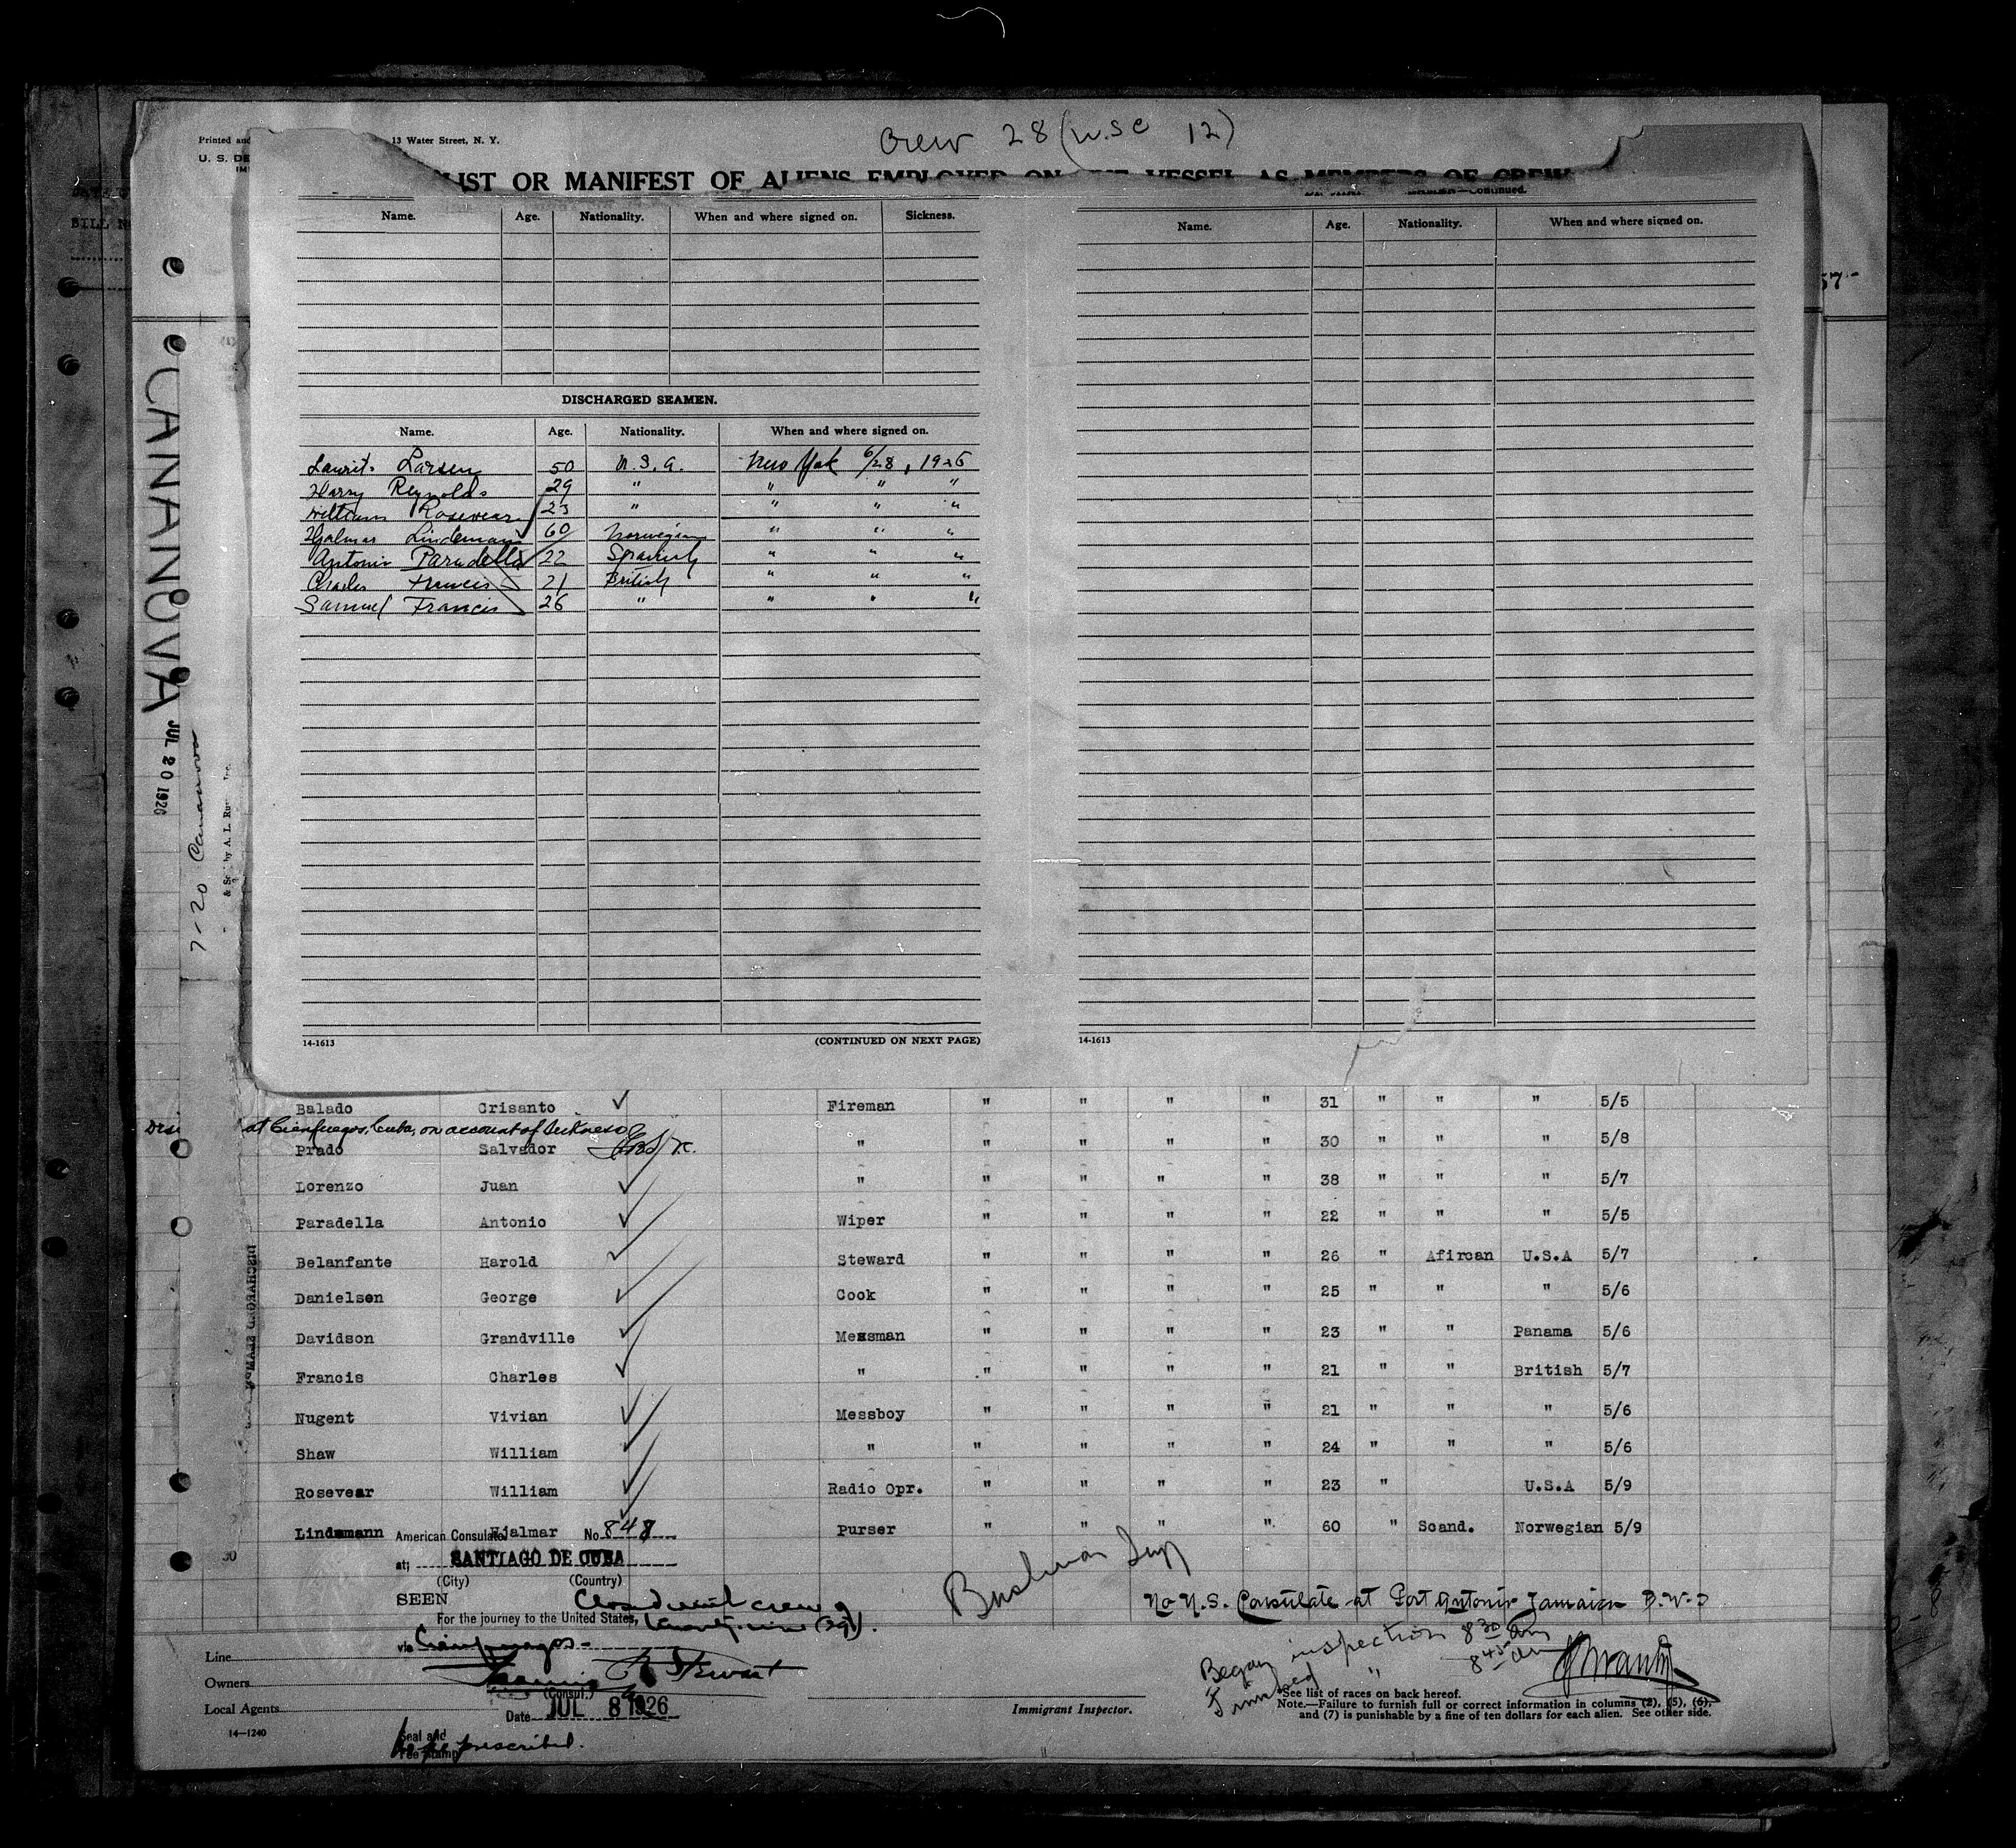 Crew 28 (U.S.C 12)
Printed and 13 Water Street, N. Y.
U. S. DE
LIST OR MANIFEST OF ALIENS EMPLOYED ON THE VESSEL AS MEMBERS OF CREW
BILL N
57-
Name. Age. Nationality. When and where signed on. Sickness.
DISCHARGED SEAMEN.
Name. Age. Nationality. When and where signed on.
Laurits Larsen 50 U.S.A. New York 6/28, 1926
Harry Reynolds 29 " " " "
William Rosevear 23 " " " "
Hjalmar Lindemann 60 Norwegian " " "
Antonio Paradella 22 Spanish " " "
Charles Francis 21 British " " "
Samuel Francis 26 " " " "
14-1613 (CONTINUED ON NEXT PAGE)
—Continued.
Name. Age. Nationality. When and where signed on.
14-1613
CANANOVA
JUL 20 1926
7-20 Cananova
by A. L. Ru
DISCHARGED SEAMEN
Balado Crisanto Fireman " " " " 31 " " " 5/5
at Cienfuegos, Cuba, on account of sickness
Prado Salvador " " " " " 30 " " " 5/8
Lorenzo Juan " " " " " 38 " " " 5/7
Paradella Antonio Wiper " " " " 22 " " " 5/5
Belanfante Harold Steward " " " " 26 " Afircan U.S.A 5/7
Danielsen George Cook " " " " 25 " " " 5/6
Davidson Grandville Messman " " " " 23 " " Panama 5/6
Francis Charles " " " " " 21 " " British 5/7
Nugent Vivian Messboy " " " " 21 " " " 5/6
Shaw William " " " " " 24 " " " 5/6
Rosevear William Radio Opr. " " " " 23 " U.S.A 5/9
Lindemann Hjalmar Purser " " " " 60 " Scand. Norwegian 5/9
American Consulate No. 848
30
at; SANTIAGO DE CUBA
(City) (Country)
SEEN
For the journey to the United States,
twenty-nine (29).
via Cienfuegos-
Stewart
(Consul.)
Date JUL 8 1926
Seal and
Fee Stamp
prescribed.
Line
Owners
Local Agents
14-1240
No U.S. Consulate at Port Antonio Jamaica B.W.I
Began inspection 8 30 am
Finished " 8 45 am
Immigrant Inspector.
*See list of races on back hereof.
Note.—Failure to furnish full or correct information in columns (2), (5), (6),
and (7) is punishable by a fine of ten dollars for each alien. See other side.